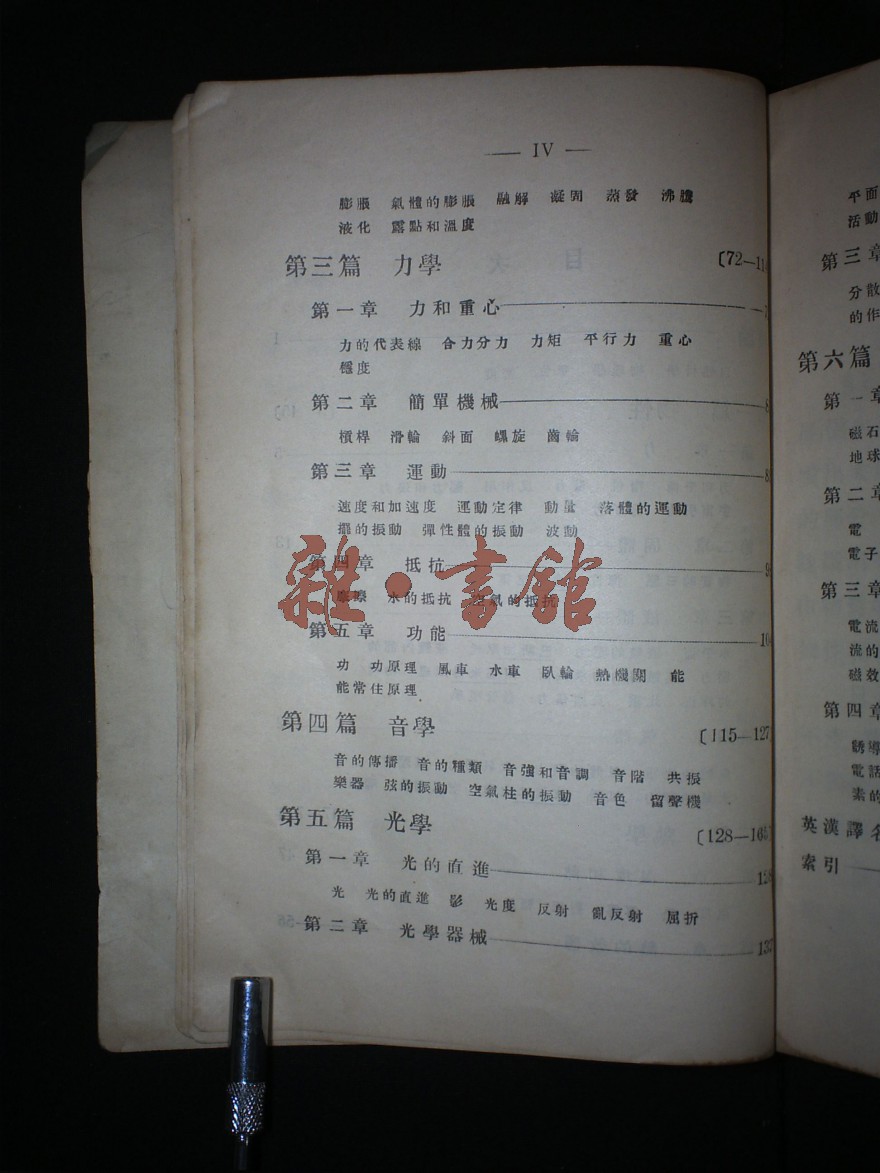 — IV —
膨脹 氣體的膨脹 融解 凝固 蒸發 沸騰
液化 露點和溫度
第三篇 力學 〔72—11
第一章 力和重心
力的代表線 合力分力 力矩 平行力 重心
穩度
第二章 簡單機械 8
槓桿 滑輪 斜面 螺旋 齒輪
第三章 運動 8
速度和加速度 運動定律 動量 落體的運動
擺的振動 彈性體的振動 波動
第四章 抵抗 9
摩擦 水的抵抗 空氣的抵抗
第五章 功能 10
功 功原理 風車 水車 臥輪 熱機關 能
能常住原理
第四篇 音學 〔115—127
音的傳播 音的種類 音強和音調 音階 共振
樂器 弦的振動 空氣柱的振動 音色 留聲機
第五篇 光學 〔128—165〕
第一章 光的直進 128
光 光的直進 影 光度 反射 亂反射 屈折
第二章 光學器械 133
雜·書館
平面
活動
第三章
分散
的作
第六篇
第一章
磁石
地球
第二章
電
電子
第三章
電流
流的
磁效
第四章
誘導
電話
素的
英漢譯名
索引